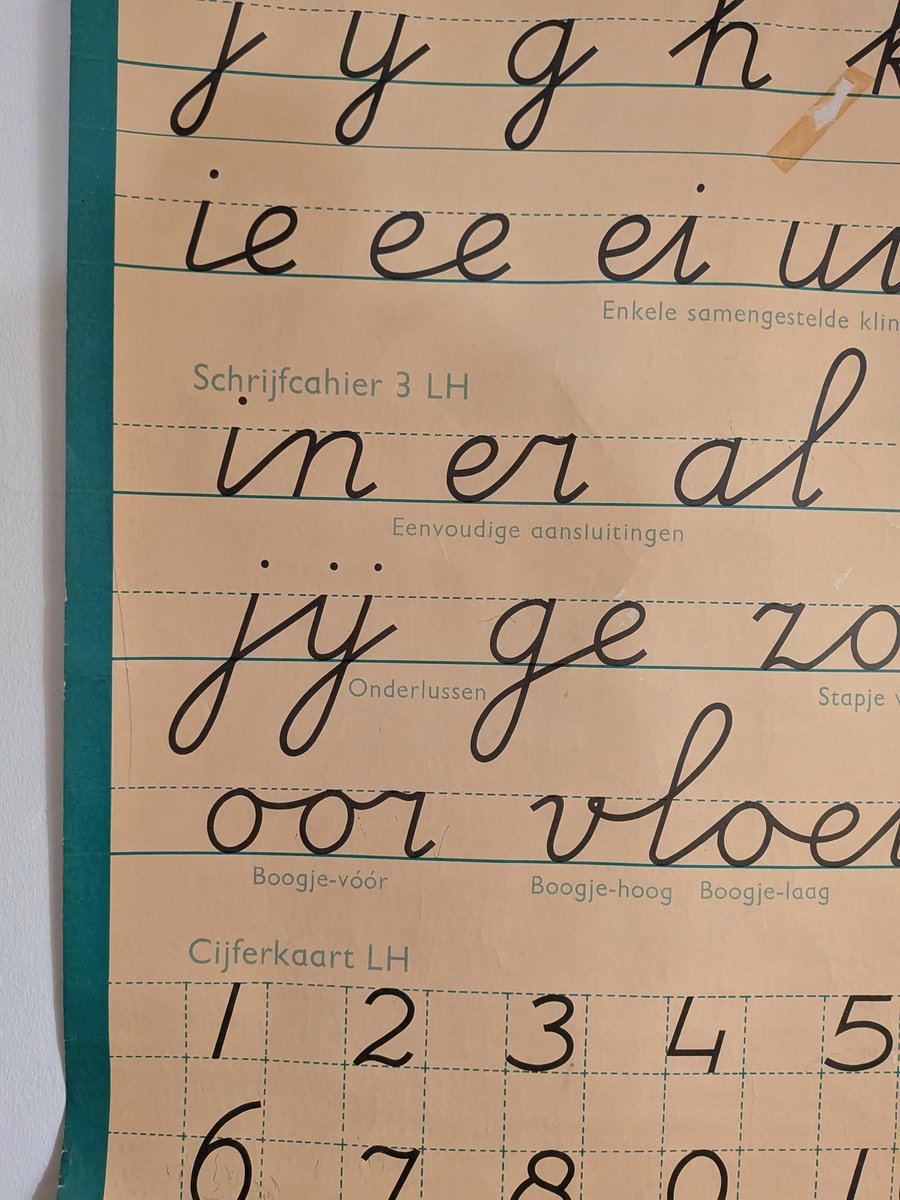 j y g h k
ie ee ei ui
Enkele samengestelde klin
Schrijfcahier 3 LH
in er al
Eenvoudige aansluitingen
jij ge zo
Onderlussen Stapje v
oor vloe
Boogje-vóór Boogje-hoog Boogje-laag
Cijferkaart LH
1 2 3 4 5
6 7 8 9 1